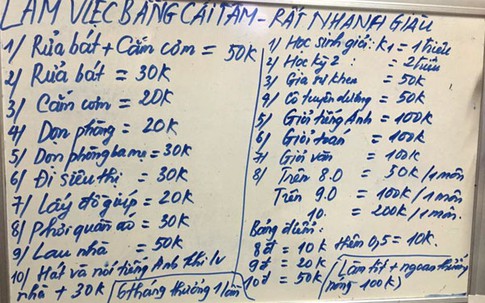 LÀM VIỆC BẰNG CÁI TÂM - RẤT NHANH GIÀU
1/ Rửa bát + Cắm cơm = 50K
2/ Rửa bát = 30K
3/ Cắm cơm = 20K
4/ Dọn phòng = 20K
5/ Dọn phòng ba mẹ = 30K
6/ Đi siêu thị = 30K
7/ Lấy đồ giúp = 20K
8/ Phơi quần áo = 30K
9/ Lau nhà = 50K
10/ Hát và nói tiếng Anh khi lv
nhà + 30K
6 tháng thưởng 1 lần
1/ Học sinh giỏi: K1 = 1 triệu
2/ Học kỳ 2 : = 2 triệu
3/ Gia sư khen = 50K
4/ Cô tuyên dương = 50K
5/ Giỏi tiếng Anh = 100K
6/ Giỏi toán = 100K
7/ Giỏi văn = 100K
8/ Trên 8.0 = 50K/1 môn
Trên 9.0 = 100K/1 môn
10. = 200K/1 môn.
Bảng điểm:
8đ = 10K thêm 0,5 = 10K.
9đ = 20K
10đ = 50K
Làm tốt + ngoan thưởng
nóng 100K